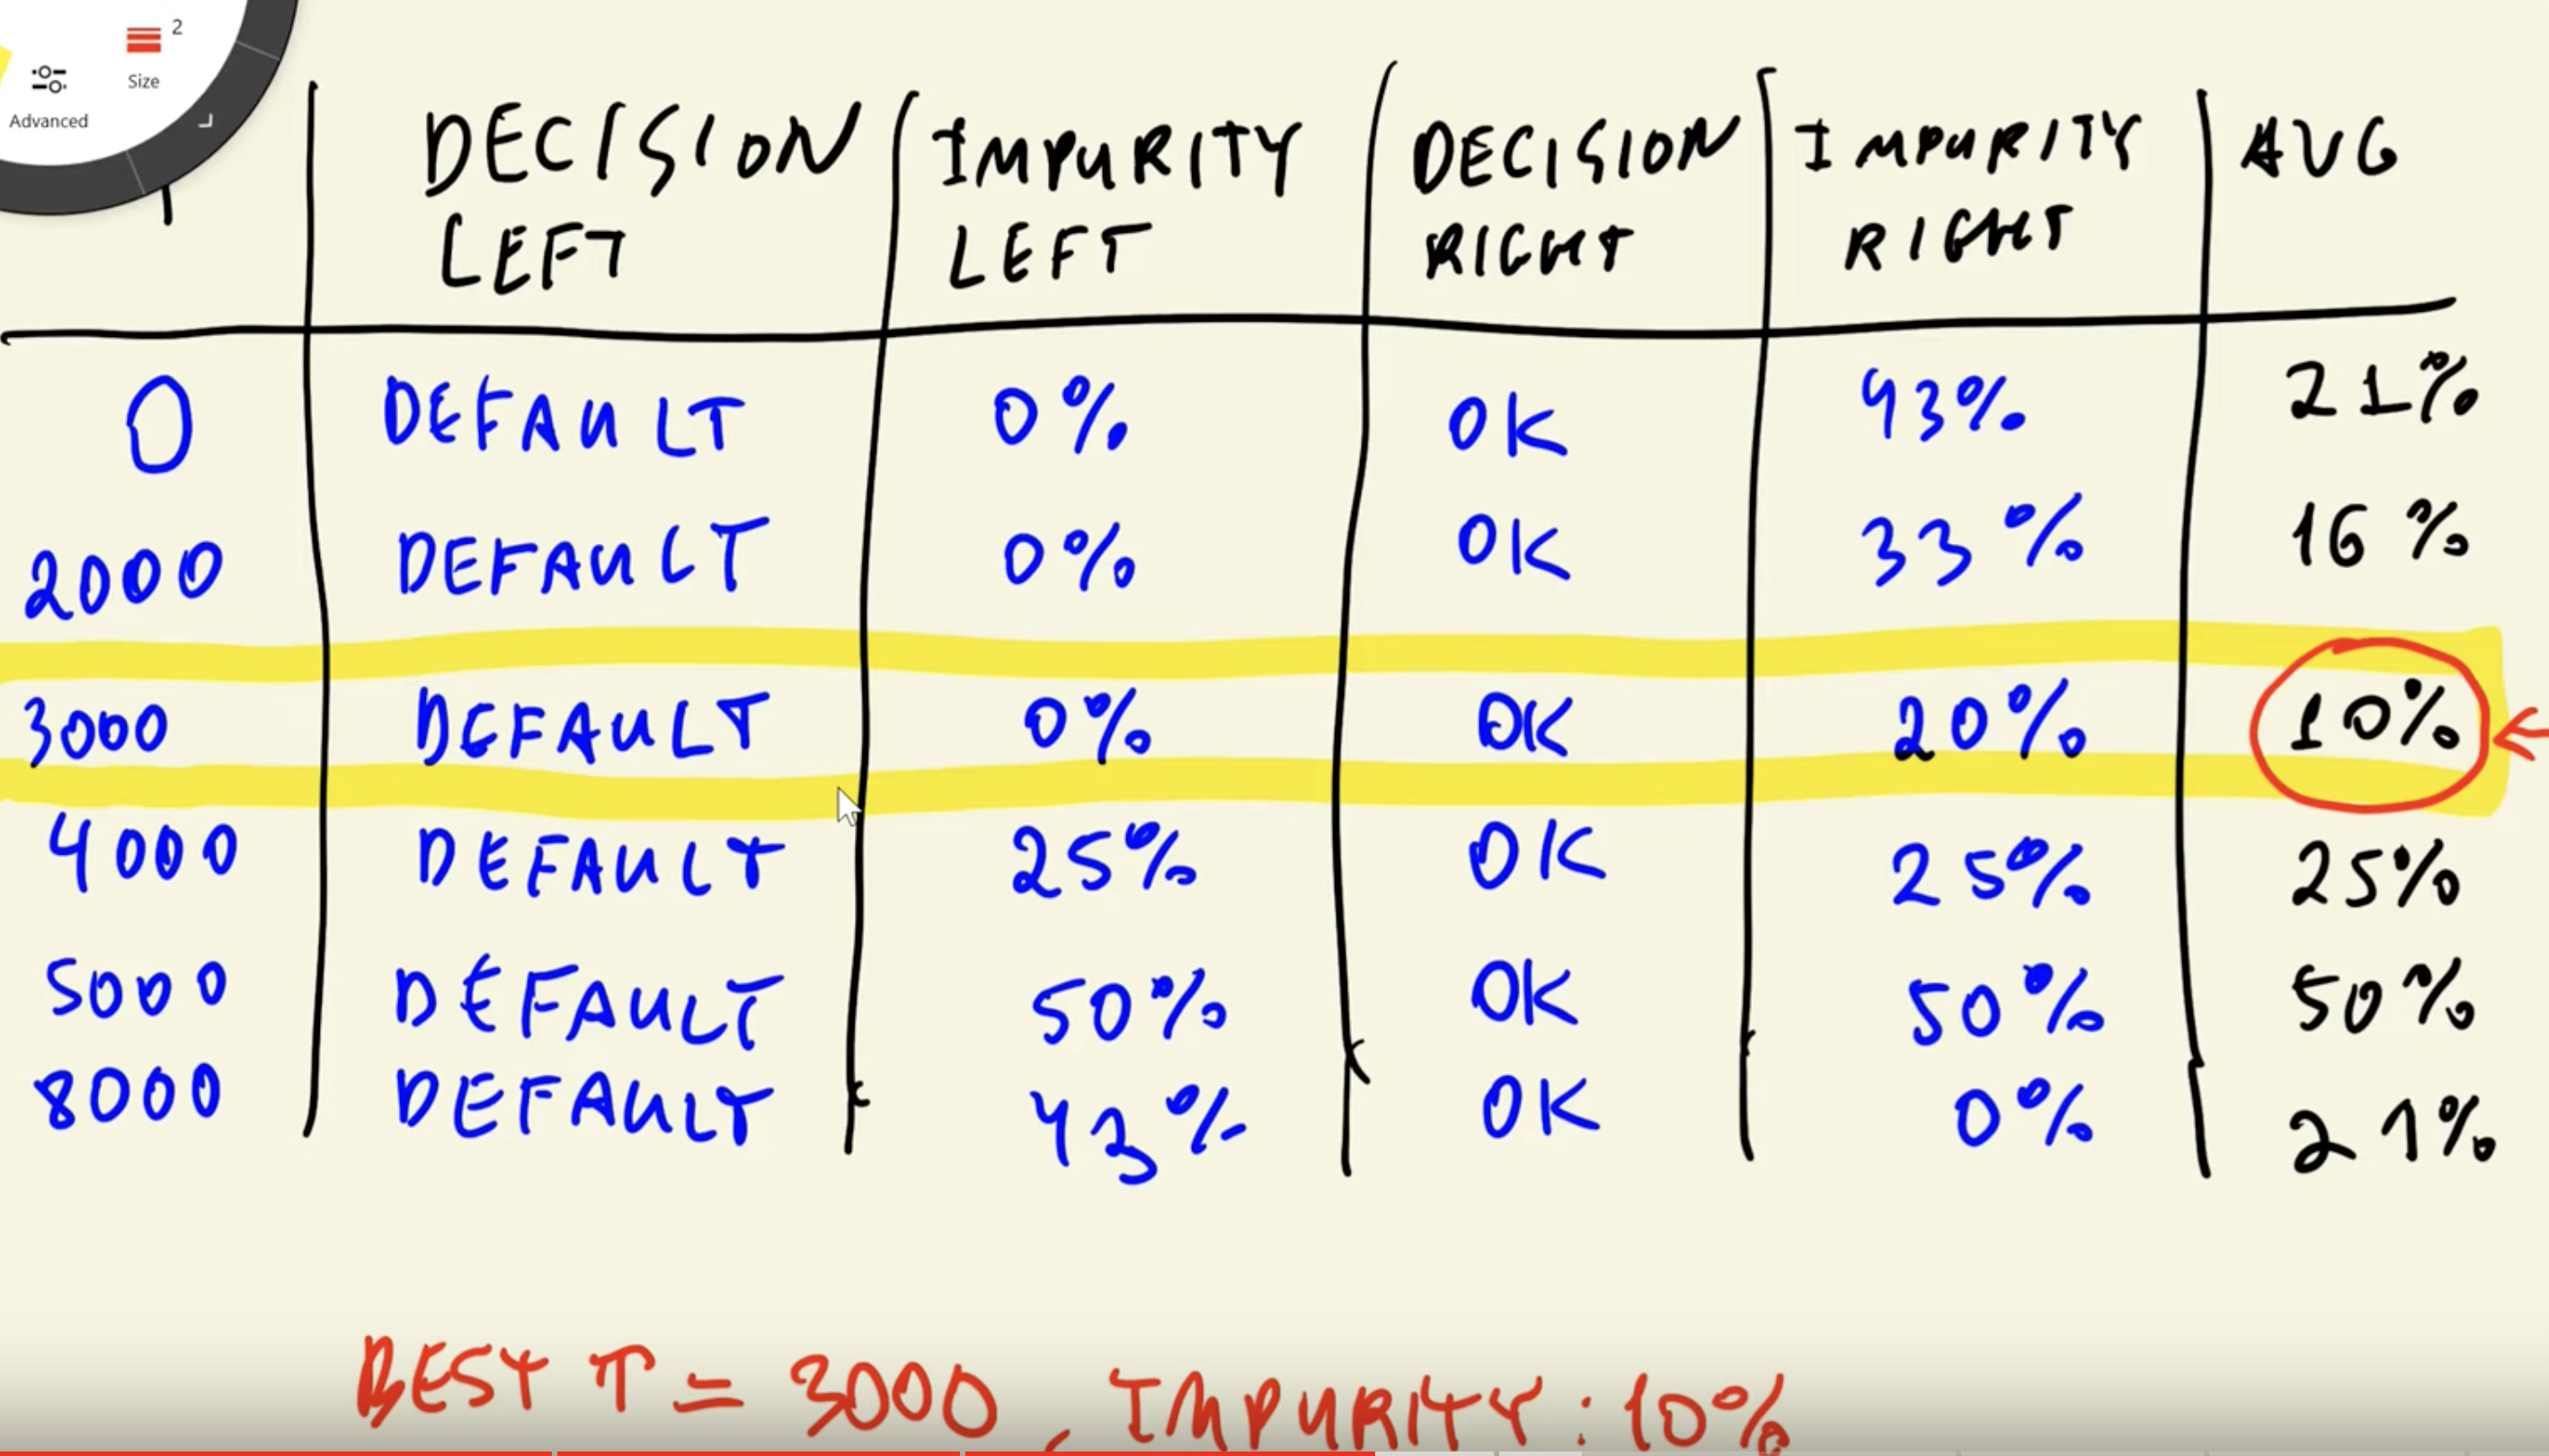 2
Size
Advanced
DECISION LEFT | IMPURITY LEFT | DECISION RIGHT | IMPURITY RIGHT | AVG
0 | DEFAULT | 0% | OK | 43% | 21%
2000 | DEFAULT | 0% | OK | 33% | 16%
3000 | DEFAULT | 0% | OK | 20% | 10%
4000 | DEFAULT | 25% | OK | 25% | 25%
5000 | DEFAULT | 50% | OK | 50% | 50%
8000 | DEFAULT | 43% | OK | 0% | 21%
BEST T = 3000, IMPURITY: 10%